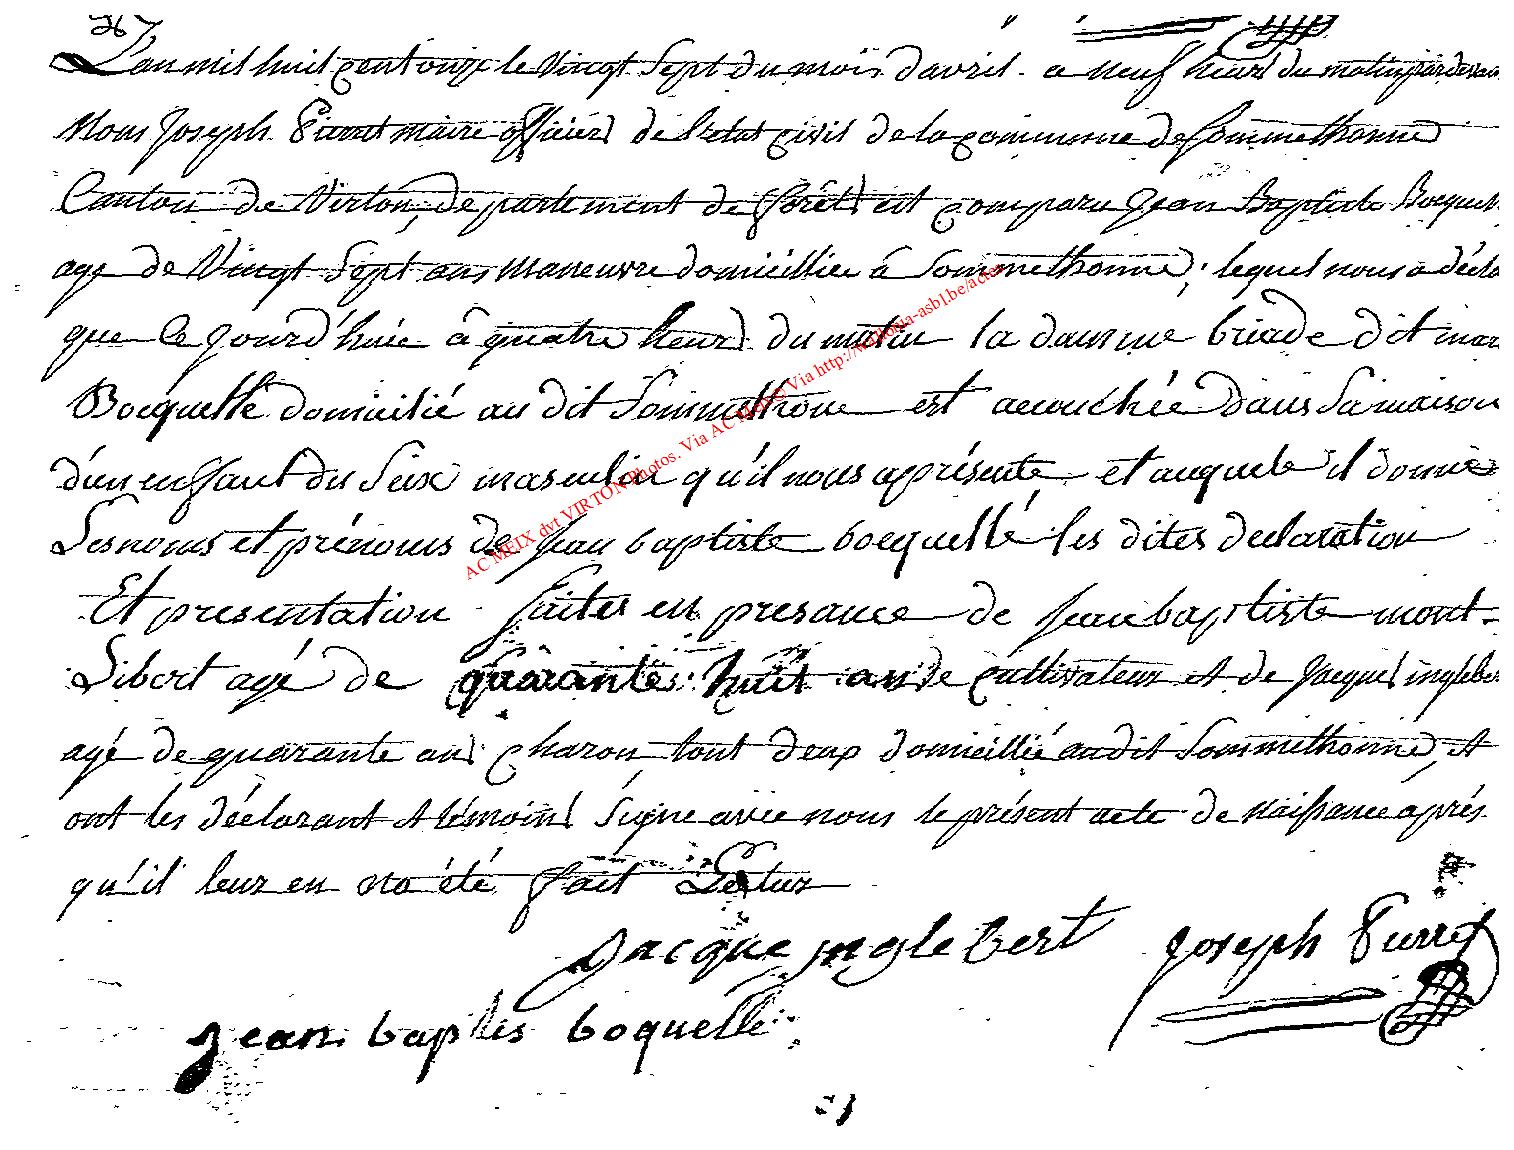 L'an mil huit cent onze le Vingt Sept du mois d'avril a neuf heurs du matin pardevan
Nous Joseph Pierret maire officiers de l'etat civil de la commune de Sommethonne
Canton de Virton, departement de forêts est comparu Jean Baptiste Bocquet
age de Vingt Sept ans maneuvre domicillier â Sommethonne, lequel nous a décla
que ce jourd'huie â quatre heurs du matin la damme briade dit mar
Bocquelle domicilié au dit Sommethone est acouchée dans Sa maison
d'un enffant du Seixe masculin qu'il nous aprésente et auquele il donné
Les noms et prénoms de jean baptiste bocquellé les dites declaration
Et presentation faites en presance de jean baptiste mont-
Libert agé de quarante huit ans de cultivateur et de Jacques ingleber
agé de quarante ans charon tout deux domicillié audit Sommethonne, et
ont les déclarant et témoins Signe avec nous le présent acte de naissance aprés
qu'il leur en na été fait Lectur
Jacque inglebert Joseph Pierret
jean baptis boquelle
AC MEIX dvt VIRTON Photos. Via AC MONS Via http://wallonia-asbl.be/actes